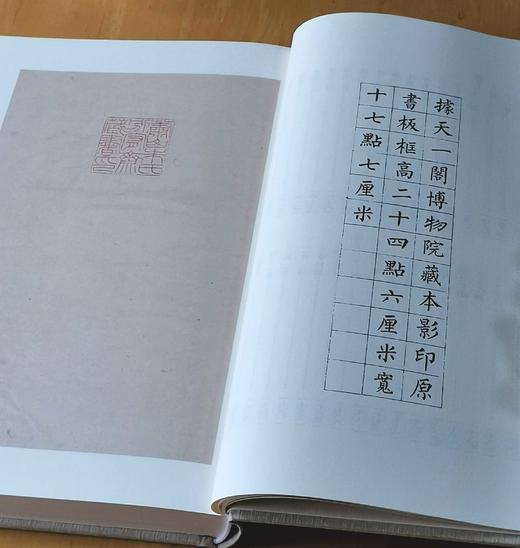 據天一閣博物院藏本影印原
書板框高二十四點六厘米寬
十七點七厘米